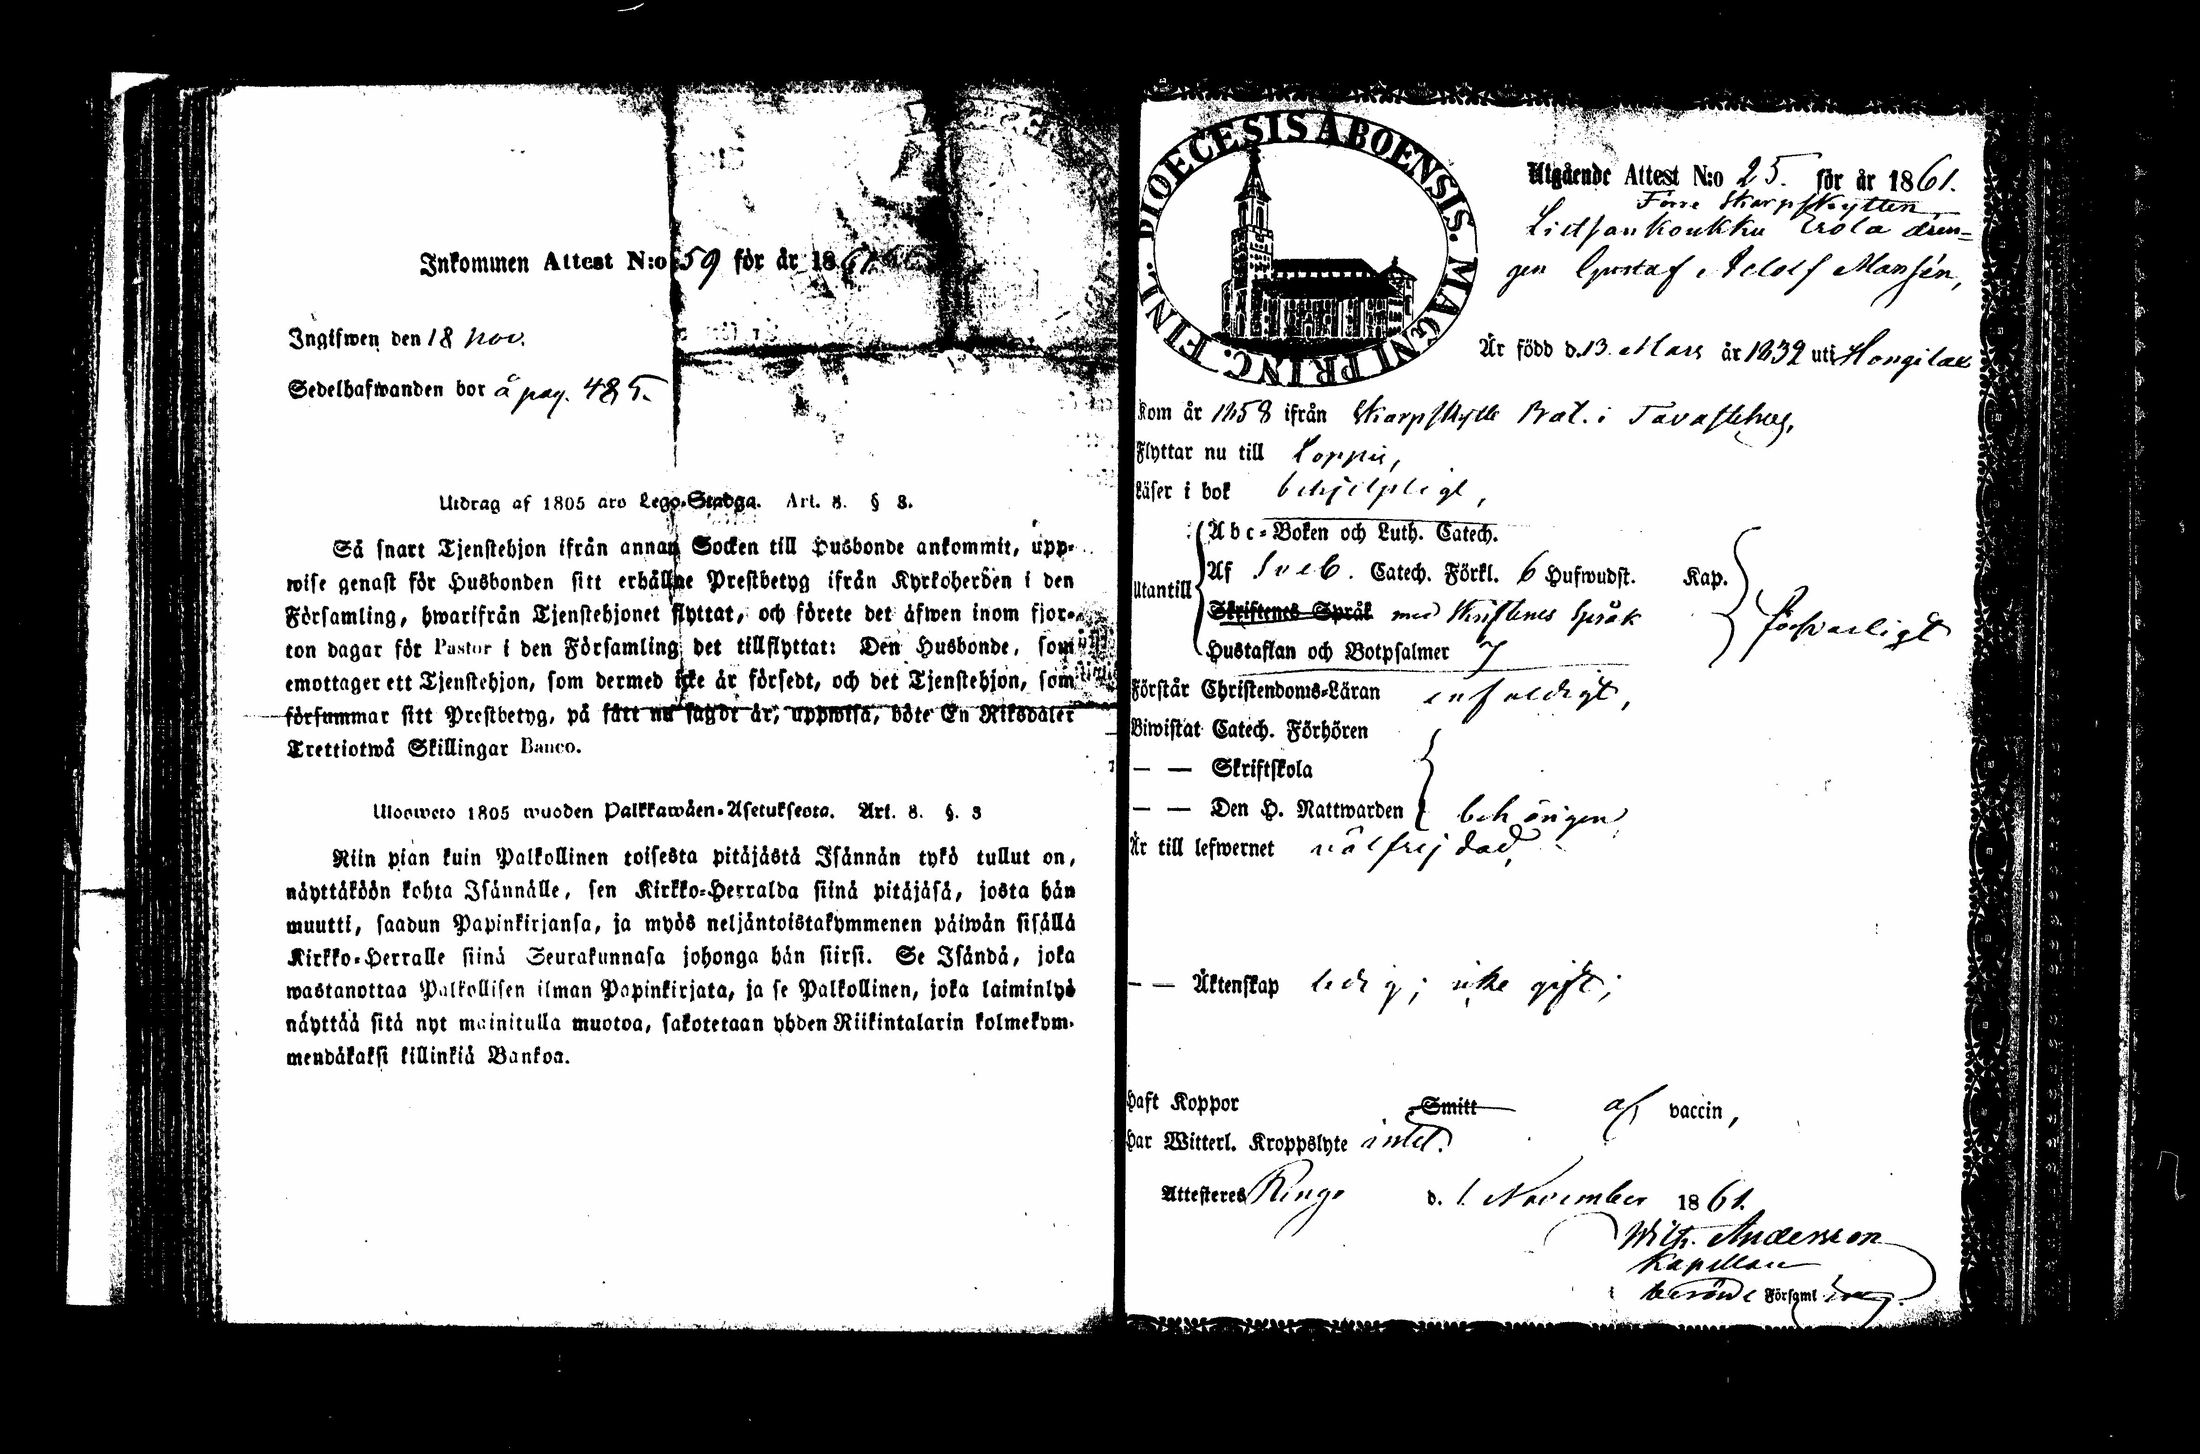 Inkommen Attest N:o 59 för år 1861.
Ingifwen den 18 nov.
Sedelhafwanden bor å pag. 485.
Utdrag af 1805 års Lego-Stadga. Art. 8. § 3.
Så snart Tjenstehjon ifrån annan Socken till Husbonde ankommit, upp-
wise genast för Husbonden sitt erhållne Prestbetyg ifrån Kyrkoherden i den
Församling, hwarifrån Tjenstehjonet flyttat, och förete det äfwen inom fjor-
ton dagar för Pastor i den Församling det tillflyttat: Den Husbonde, som
emottager ett Tjenstehjon, som dermed icke är försedt, och det Tjenstehjon, som
försummar sitt Prestbetyg, på sätt nu sagdt är, uppwisa, böte En Riksdaler
Trettiotwå Skillingar Banco.
Ulosweto 1805 wuoden Palkkawäen-Asetuksesta. Art. 8. §. 3
Niin pian kuin Palkollinen toisesta pitäjästä Isännän tykö tullut on,
näyttäköön kohta Isännälle, sen Kirkko-Herralda siinä pitäjäsä, josta hän
muutti, saadun Papinkirjansa, ja myös neljäntoistakymmenen päiwän sisällä
Kirkko-Herralle siinä Seurakunnasa johonga hän siirsi. Se Isändä, joka
wastanottaa Palkollisen ilman Papinkirjata, ja se Palkollinen, joka laiminlyö
näyttää sitä nyt mainitulla muotoa, sakotetaan yhden Riikintalarin kolmekym-
mendäkaksi killinkiä Bankoa.
DIOECESIS ABOENSIS. MAGNI PRINC. FINL.
Utgående Attest N:o 25. för år 1861.
Förre Skarpskytten
Erola dren=
gen Gustaf Adolf Mansén,
Är född d. 13. Mars år 1832 uti Hongilax
Kom år 1858 ifrån Skarpskytte Bat. i Tavastehus,
Flyttar nu till Loppis,
Läser i bok behjelpligt,
Utantill
Abc-Boken och Luth. Catech.
Af Sveb. Catech. Förkl. 6 Hufwudst. Kap.
Skriftenes Språk med Skriftenes Språk
försvarligt
Hustaflan och Botpsalmer 7
Förstår Christendoms-Läran enfaldigt,
Biwistat Catech. Förhören
— — Skriftskola
— — Den H. Nattwarden behörigen
Är till lefwernet välfrejdad,
— — Äktenskap ledig; icke gift;
Haft Koppor Smitt af vaccin,
Har Witterl. Kroppslyte intet.
Attesteres Rengo d. 1 November 1861.
Wilh. Andersson
Kapellan
Församl